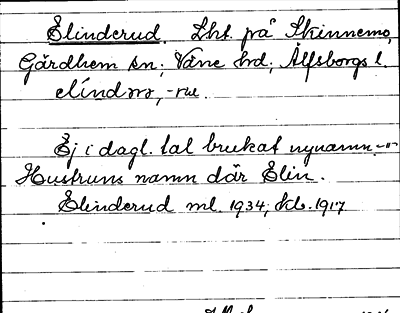 Elinderud. Lht. på Skinnemo,
Gärdhem sn; Väne hd; Älfsborgs l.
Ej i dagl. tal brukat nynamn.
Hustruns namn där Elin.
Elinderud ml. 1934; kb. 1917